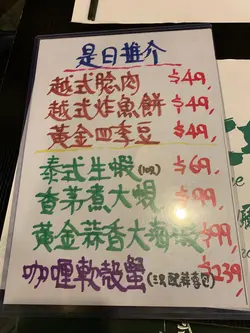 是日推介
越式腍肉 $49,
越式炸魚餅 $49,
黃金四季豆 $49,
泰式生蝦(10隻) $69,
香茅煮大蜆 $99,
黃金蒜香大海蝦 $99,
咖喱軟殼蟹(三隻配蒜蓉包) $239,